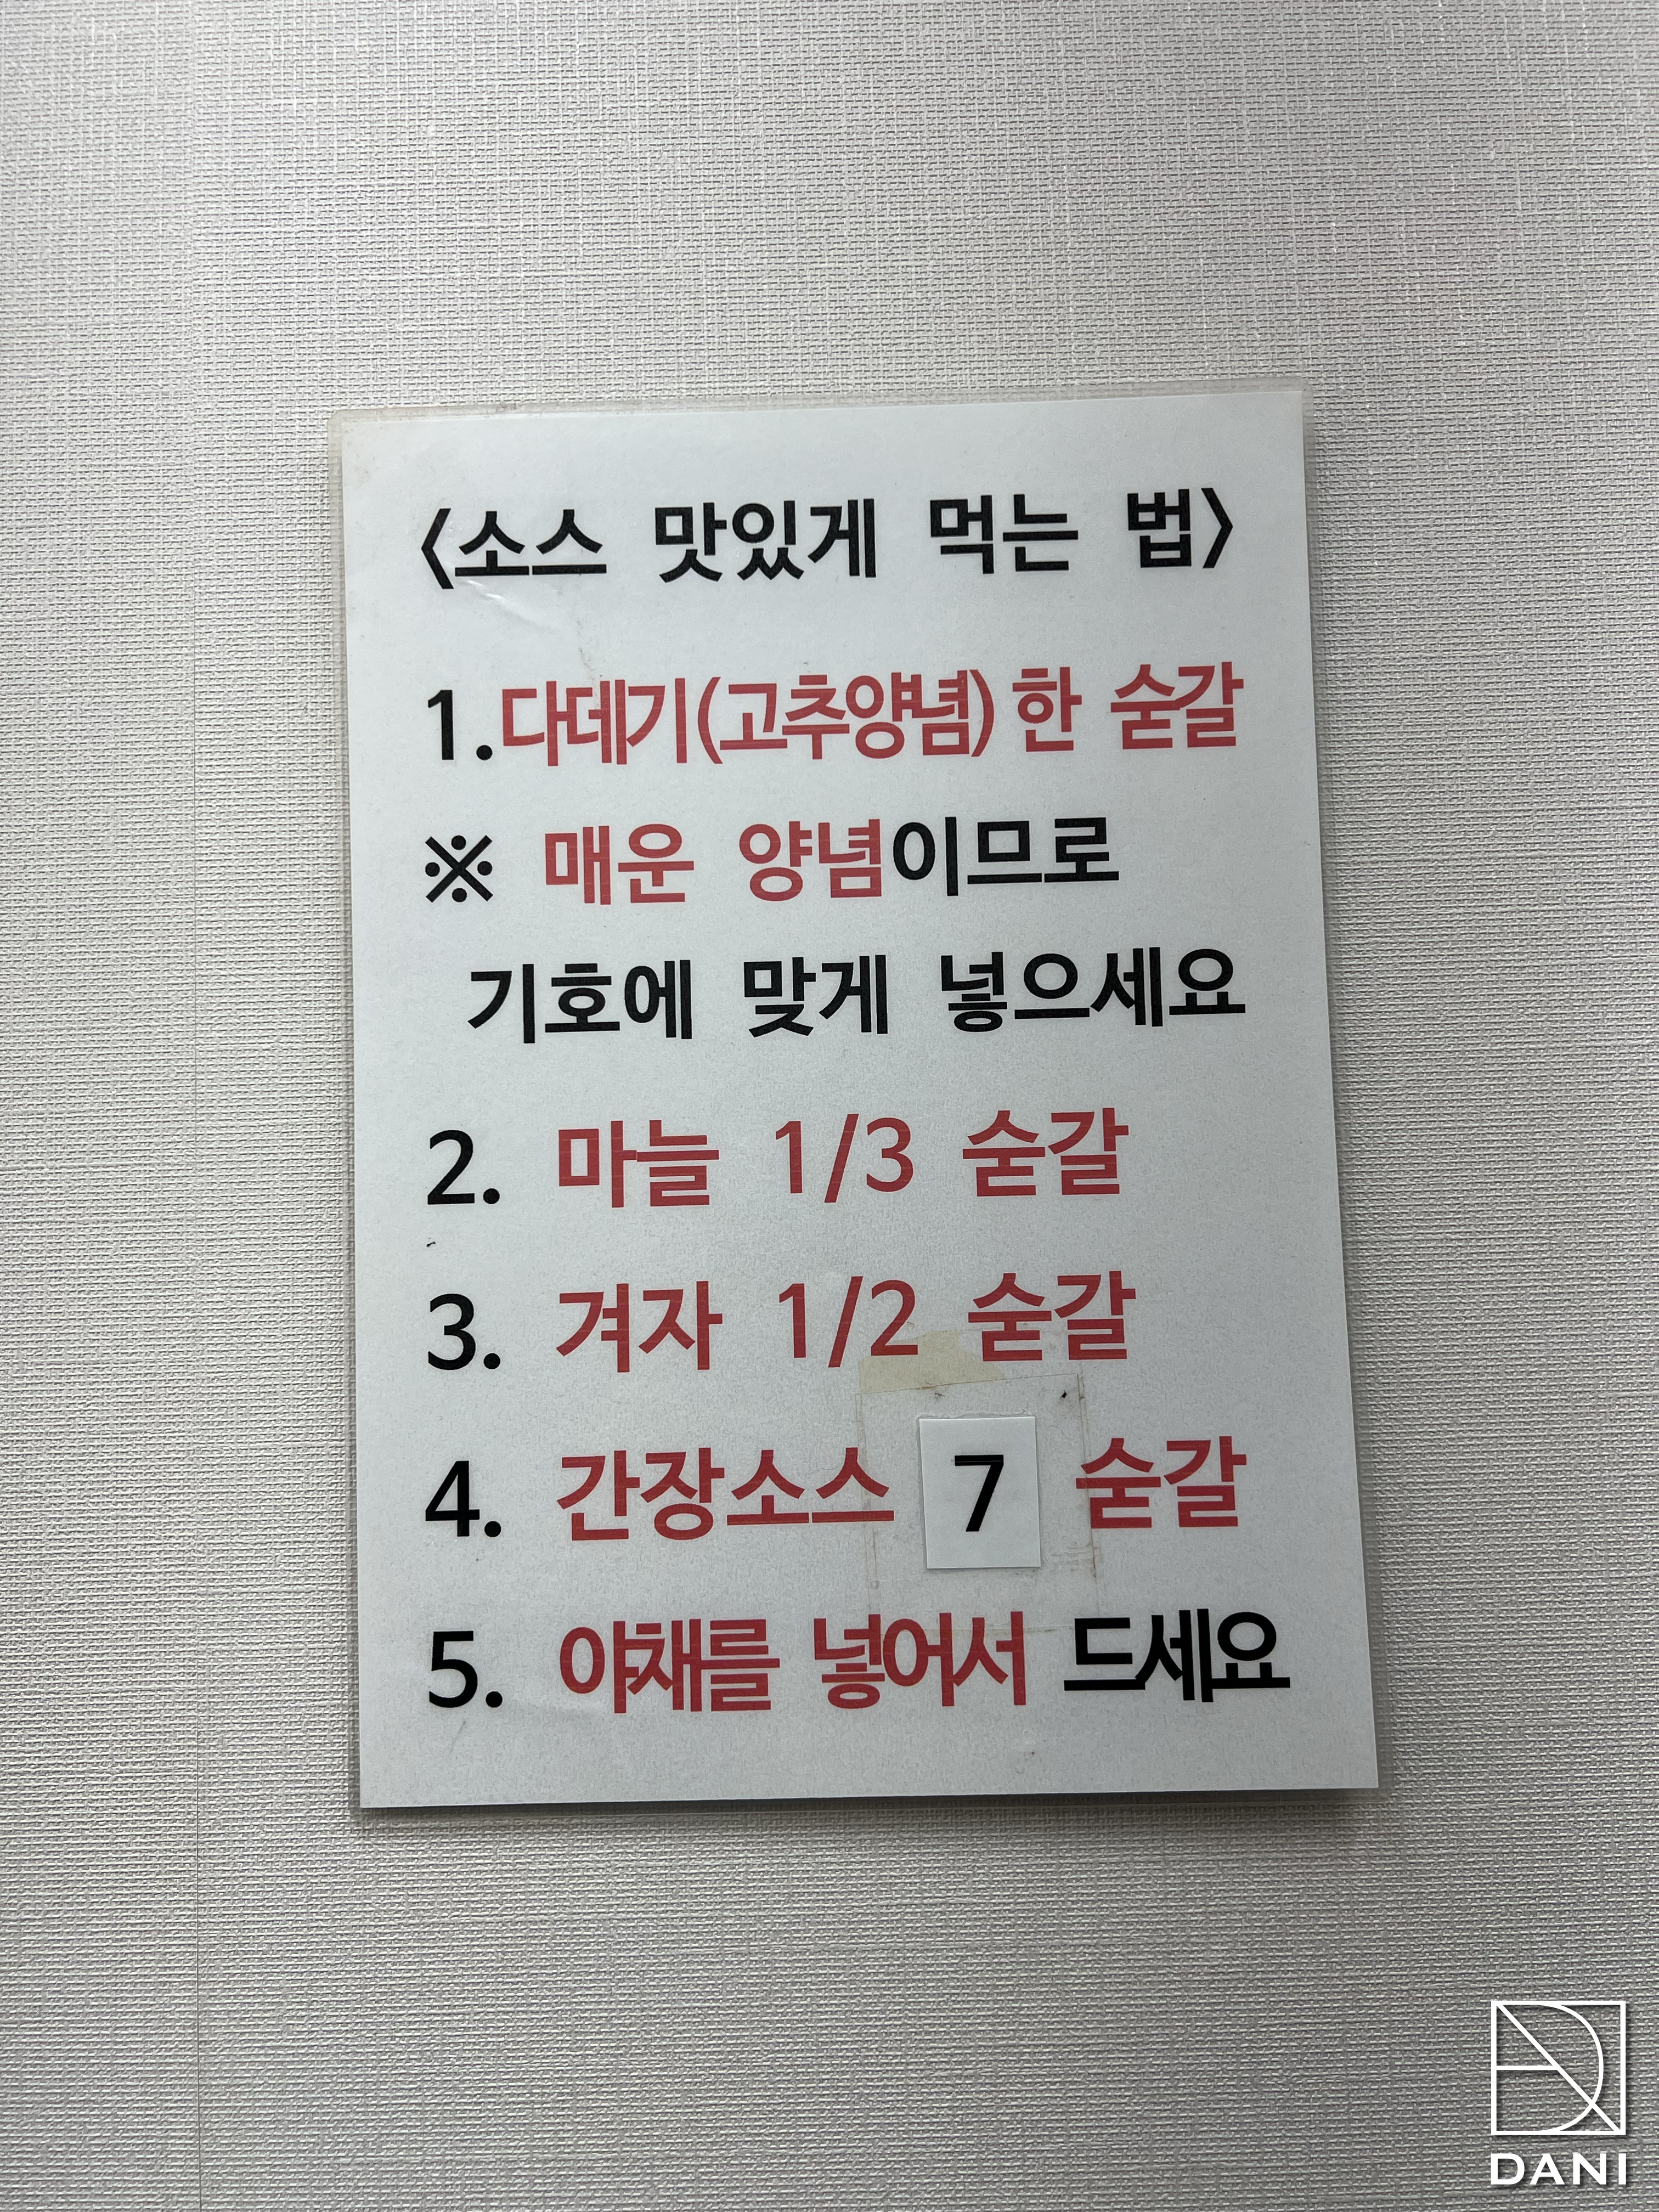 <소스 맛있게 먹는 법>
1.다데기(고추양념) 한 숟갈
※ 매운 양념이므로
기호에 맞게 넣으세요
2. 마늘 1/3 숟갈
3. 겨자 1/2 숟갈
4. 간장소스 7 숟갈
5. 야채를 넣어서 드세요
DANI